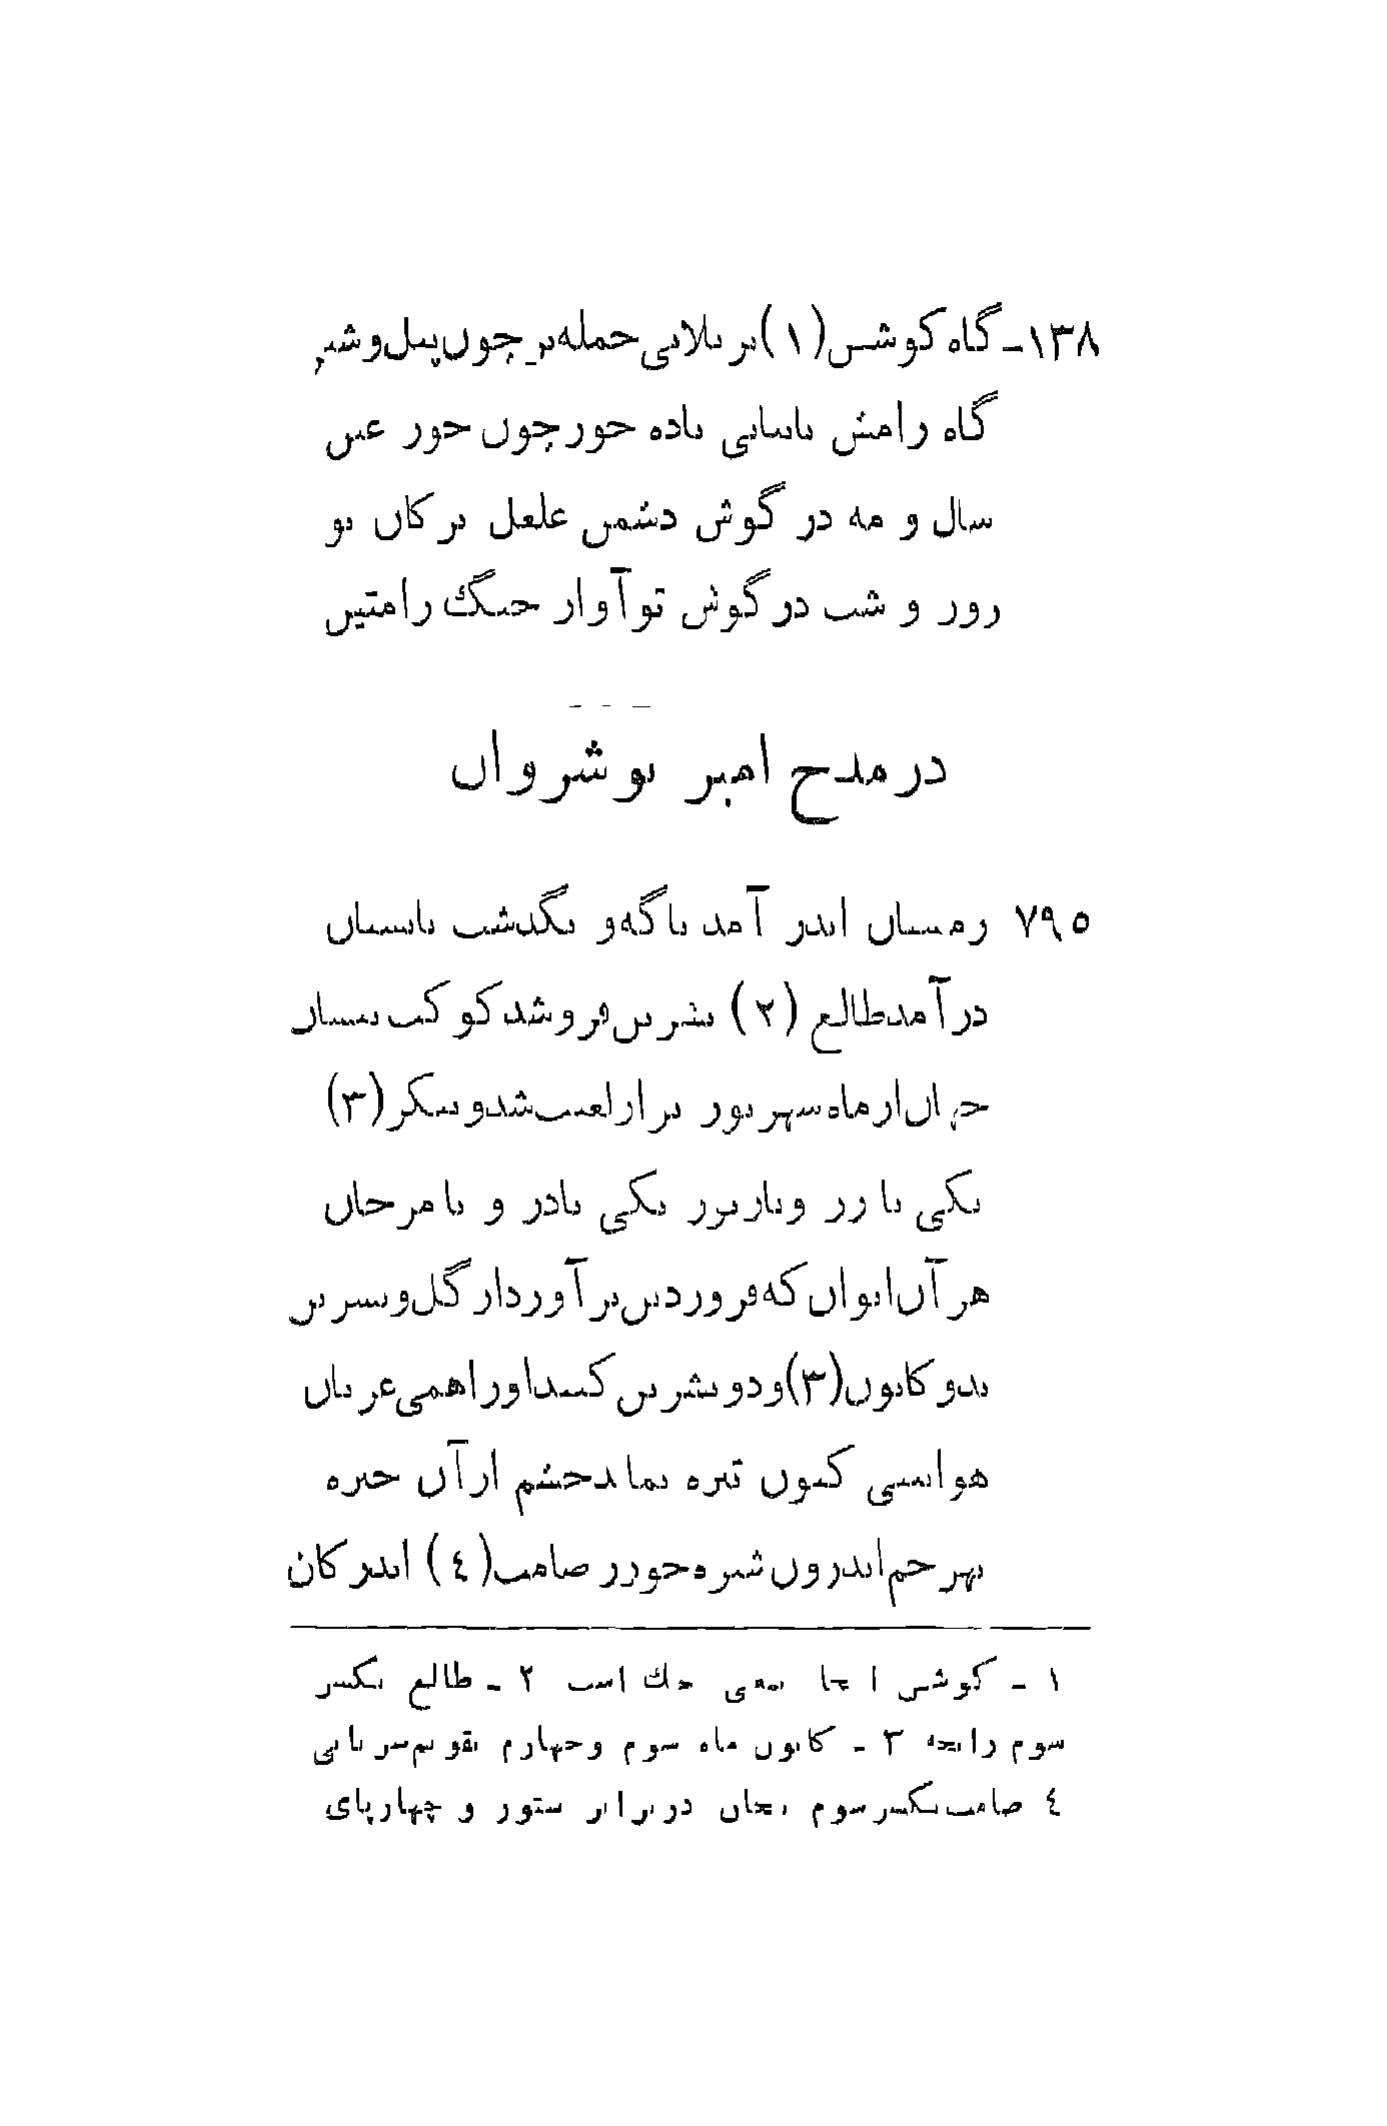 ۱۳۸- گاه کوشس (۱) بر بلائی حمله بر چون پیل و شیر
گاه رامش بابتانی باده خور چون حور عین
سال و مه در گوش دشمن غلغل ترکان تو
روز و شب در گوش تو آواز چنگ رامتین
در مدح امیر نوشروان
۷۹۵ زمستان اندر آمد ناگه و بگذشت تابستان
در آمد طالع (۲) تشرین فرو شد کوکب نیسان
جهان از ماه شهریور پر از لعبت شد و پیکر (۳)
یکی با زر و با زیور یکی با در و با مرجان
هر آن ایوان که فروردین بر آورد از گل و نسرین
بدو کانون (۳) و دو تشرین کنند او را همی عریان
هوا بینی کنون تیره بماند چشم از آن خیره
بهر خم اندرون شیره چو زر صامت (٤) اندر کان
۱ - کوشس اینجا بمعنی جنك است ۲ - طالع بکسر
سوم رایحه ۳ - کانون ماه سوم و چهارم تقویم سریانی
٤ صامت بکسر سوم بیجان در برابر ستور و چهارپای